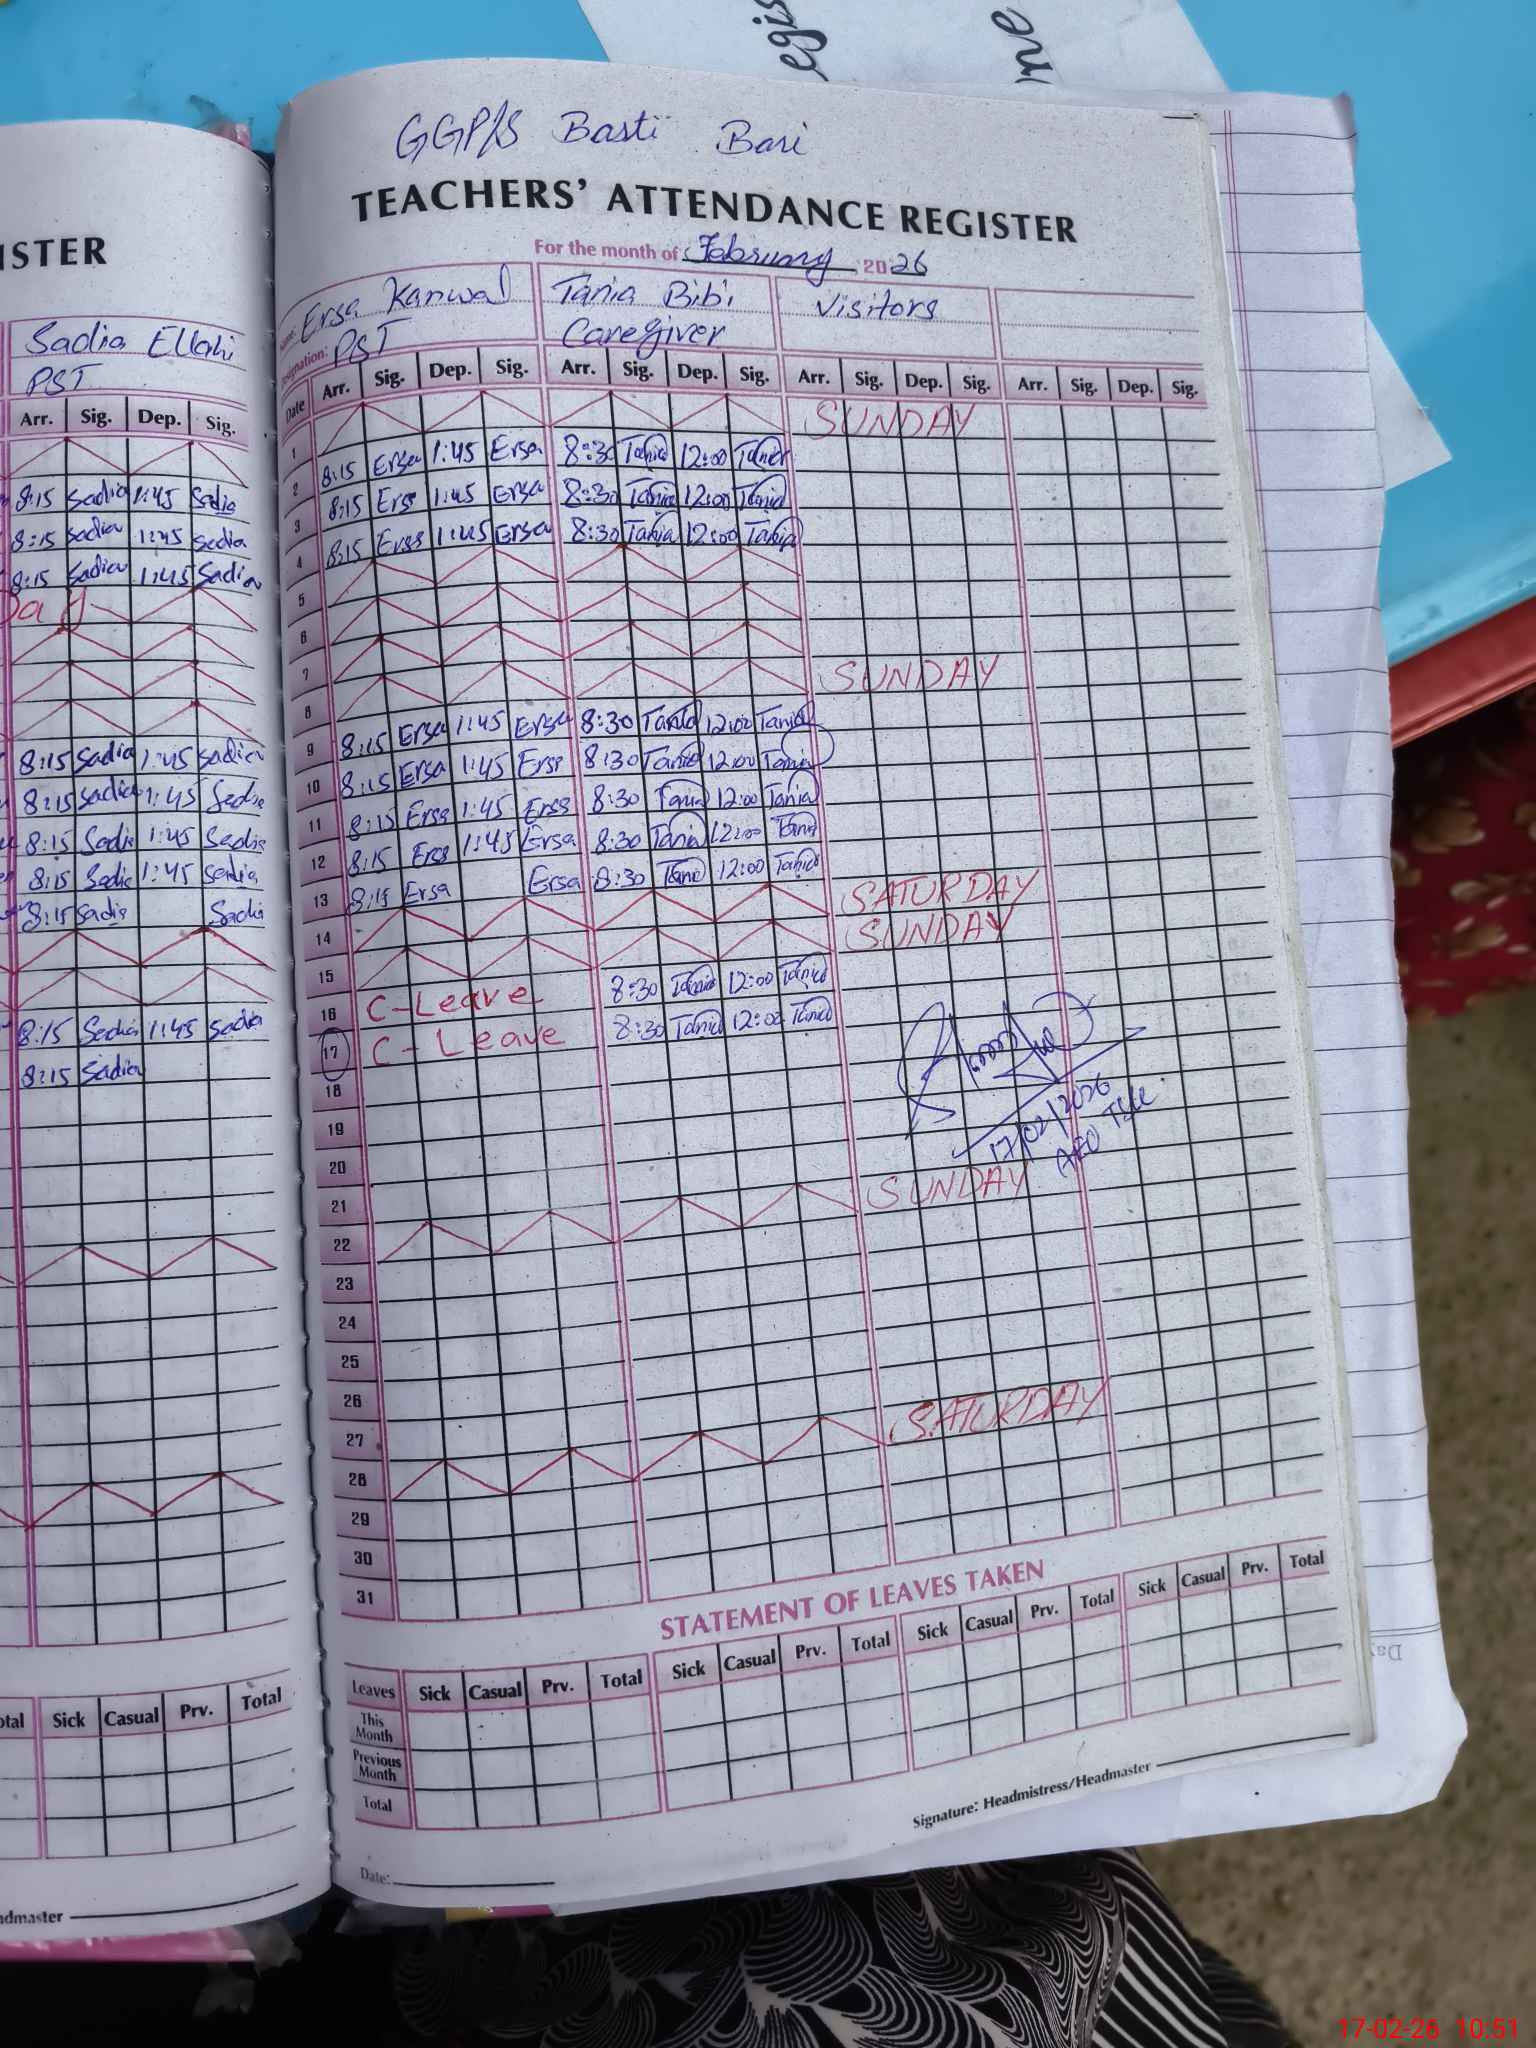 egis
me
GGP/S Basti Bari
TEACHERS' ATTENDANCE REGISTER
For the month of February 2026
Name: Ersa Kanwal Tania Bibi Visitors
Designation: PST Caregiver
Date Arr. Sig. Dep. Sig. Arr. Sig. Dep. Sig. Arr. Sig. Dep. Sig. Arr. Sig. Dep. Sig.
1 SUNDAY
2 8:15 Ersa 1:45 Ersa 8:30 Tania 12:00 Tania
3 8:15 Ersa 1:45 Ersa 8:30 Tania 12:00 Tania
4 8:15 Ersa 1:45 Ersa 8:30 Tania 12:00 Tania
5
6
7
8 SUNDAY
9 8:15 Ersa 1:45 Ersa 8:30 Tania 12:00 Tania
10 8:15 Ersa 1:45 Ersa 8:30 Tania 12:00 Tania
11 8:15 Ersa 1:45 Ersa 8:30 Tania 12:00 Tania
12 8:15 Ersa 1:45 Ersa 8:30 Tania 12:00 Tania
13 8:15 Ersa Ersa 8:30 Tania 12:00 Tania
14 SATURDAY
15 SUNDAY
16 C-Leave 8:30 Tania 12:00 Tania
17 C-Leave 8:30 Tania 12:00 Tania
18
17/02/2026
19
AEO
20
21
22 SUNDAY
23
24
25
26
27
28 SATURDAY
29
30
31
STATEMENT OF LEAVES TAKEN
Leaves Sick Casual Prv. Total Sick Casual Prv. Total Sick Casual Prv. Total Sick Casual Prv. Total
This Month
Previous Month
Total
Signature: Headmistress/Headmaster
Date:
ISTER
Sadia Ellahi
PST
Arr. Sig. Dep. Sig.
8:15 Sadia 1:45 Sadia
8:15 Sadia 1:45 Sadia
8:15 Sadia 1:45 Sadia
Day
8:15 Sadia 1:45 Sadia
8:15 Sadia 1:45 Sadia
8:15 Sadia 1:45 Sadia
8:15 Sadia 1:45 Sadia
8:15 Sadia Sadia
8:15 Sadia 1:45 Sadia
8:15 Sadia
otal Sick Casual Prv. Total
admaster
17-02-26 10:51